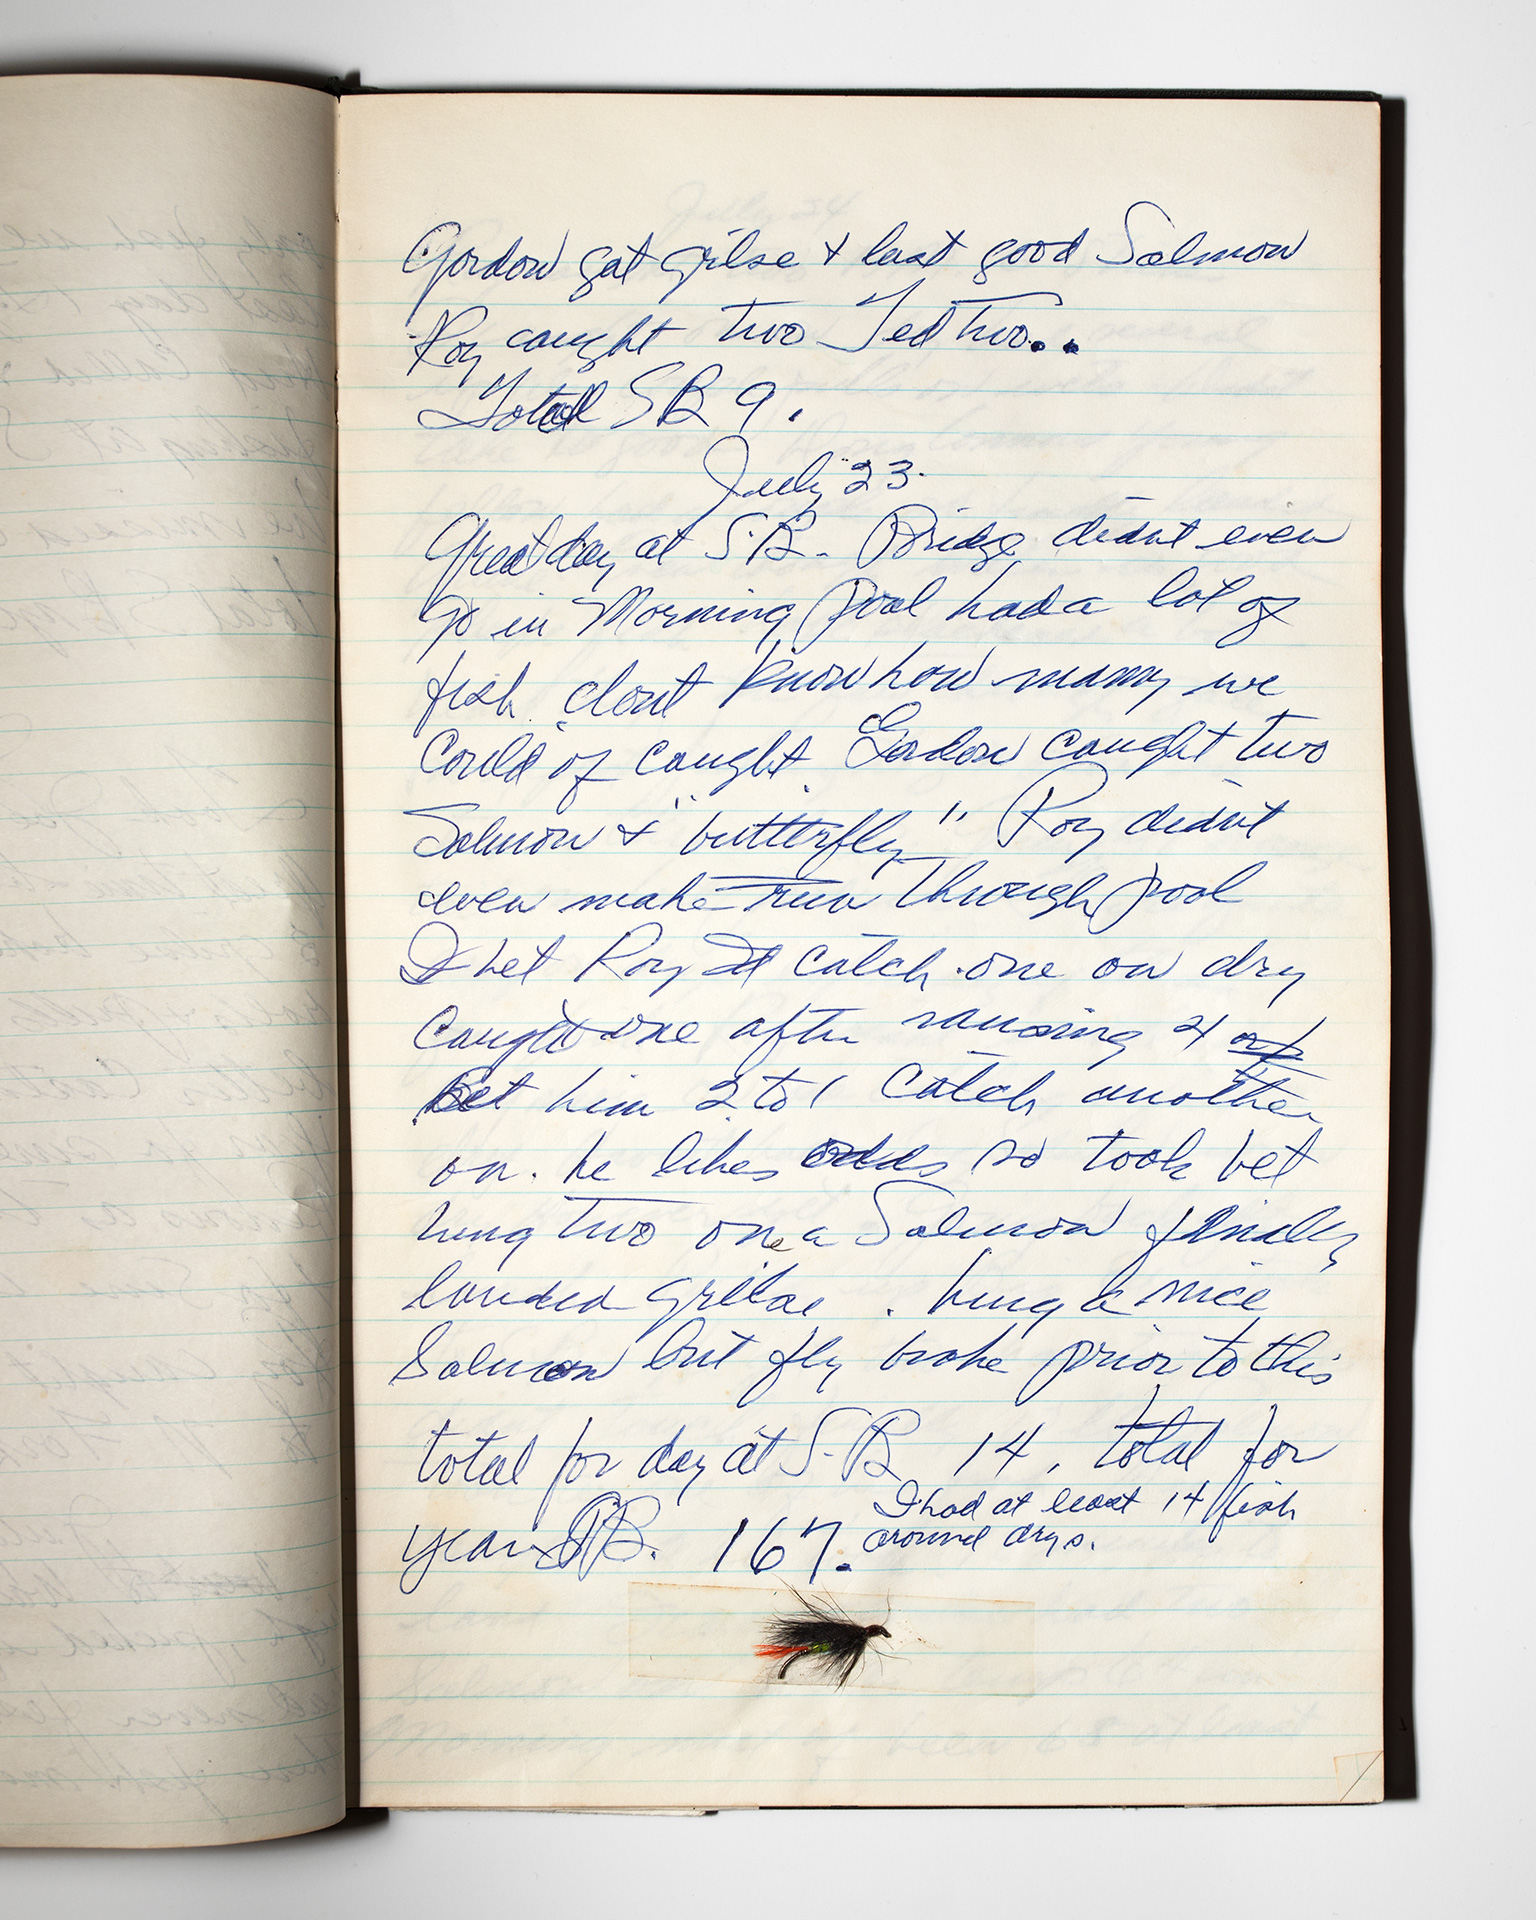 Gordon got grilse + last good Salmon
Roy caught two Ted two..
Total SB 9.
July 23.
Great day at S.B. Bridge didnt even
go in Morning Pool had a lot of
fish dont know how many we
Could of caught. Gordon caught two
Salmon + "butterfly" Roy didnt
even make run through pool
I bet Roy I'd catch one on dry
Caught one after raising 4
Bet him 2 to 1 Catch another
on. he likes odds so took bet
hung two one a Salmon finally
landed grilse . hung a nice
Salmon but fly broke prior to this
total for day at S.B 14, total for
year SB. 167.
I had at least 14 fish
around drys.